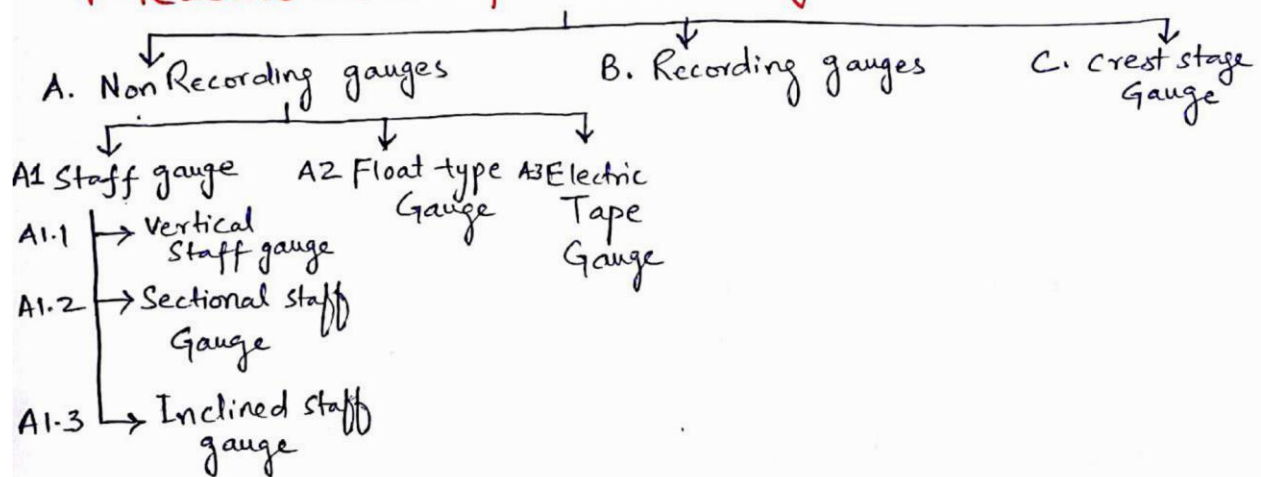 A. Non Recording gauges
B. Recording gauges
C. Crest stage
Gauge
A1 Staff gauge
A2 Float type
Gauge
A3 Electric
Tape
Gauge
A1.1 → Vertical
Staff gauge
A1.2 → Sectional staff
Gauge
A1.3 → Inclined staff
gauge